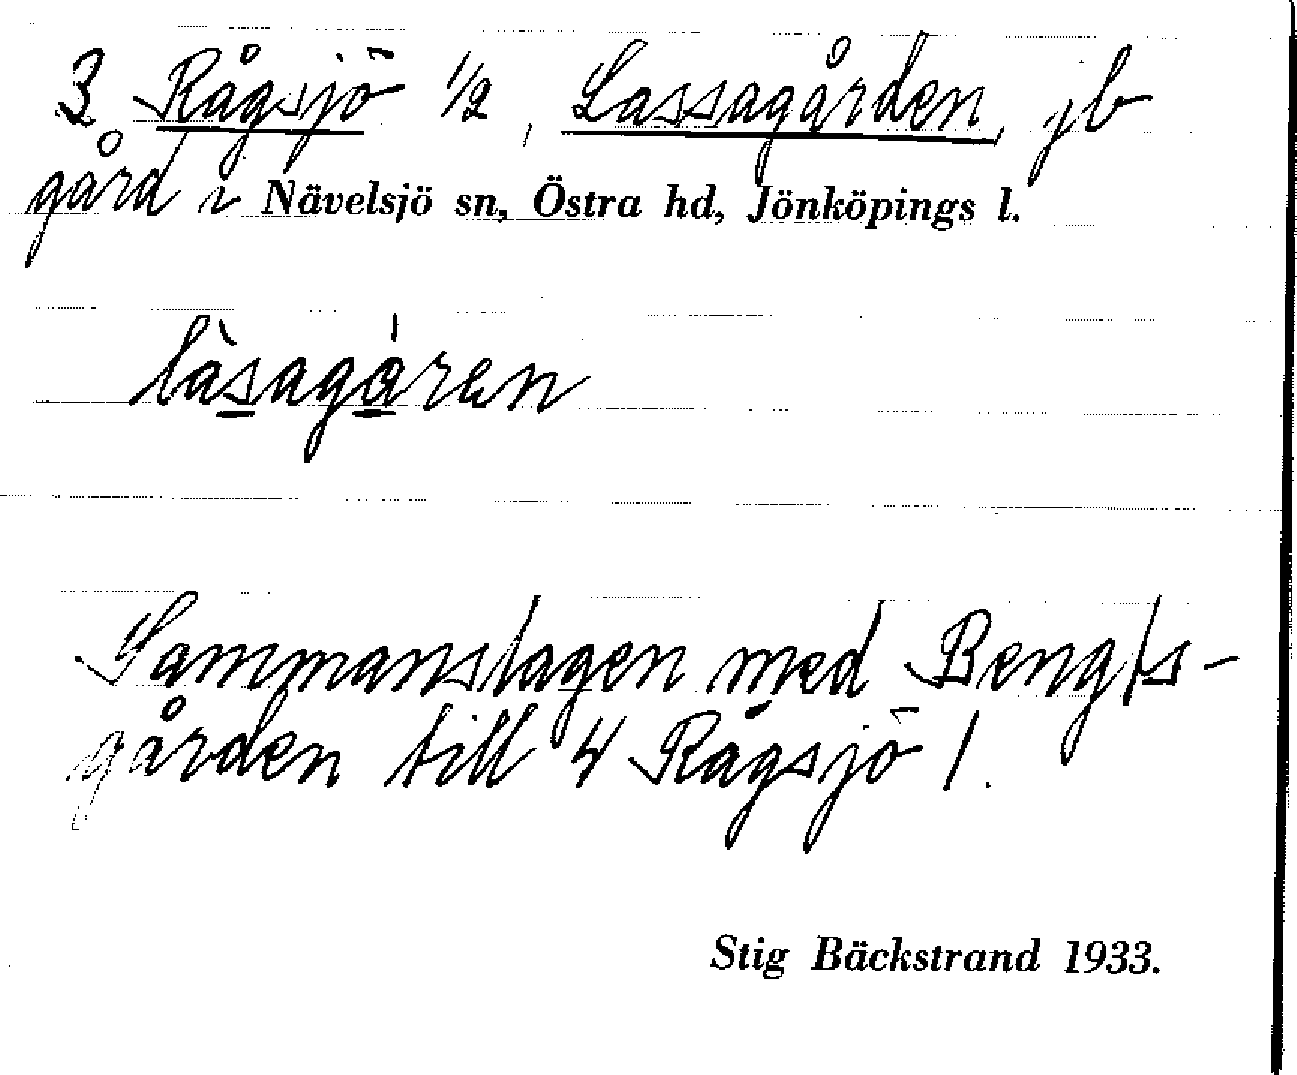 3 Rågsjö 1/2, Lassagården, jb
gård i Nävelsjö sn, Östra hd, Jönköpings l.
làsagá̊ren
Sammanslagen med Bengts-
gården till 4 Rågsjö 1.
Stig Bäckstrand 1933.